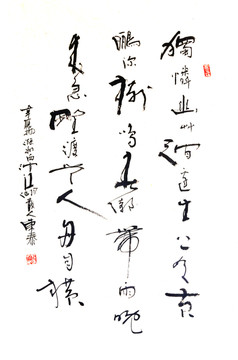 獨憐幽草澗邊生上有黃
鸝深樹鳴春潮帶雨晚
来急野渡無人舟自橫